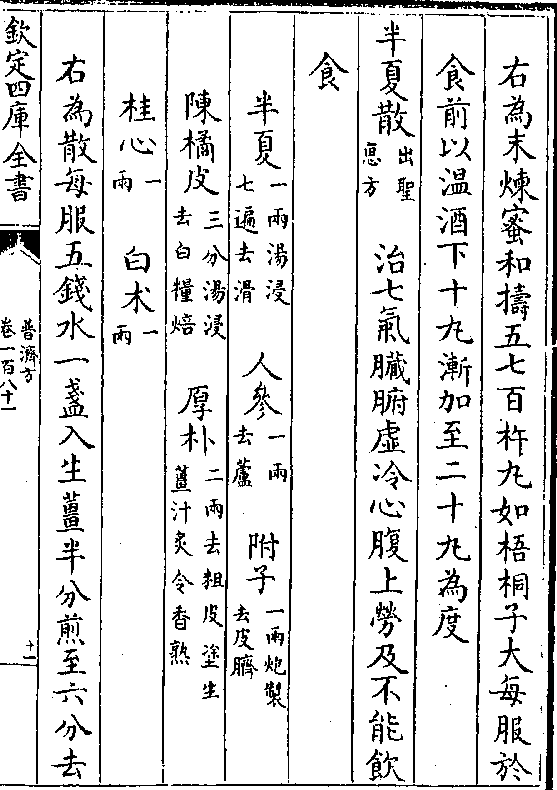 右為末煉蜜和擣五七百杵丸如梧桐子大每服於
食前以温酒下十丸漸加至二十丸為度
半夏散出聖惠方 治七氣臟腑虛冷心腹上勞及不能飲
食
半夏一兩湯浸七遍去滑 人參一兩去蘆 附子一兩炮製去皮臍
陳橘皮三分湯浸去白糧焙 厚朴二兩去粗皮塗生薑汁炙令香熟
桂心一兩 白术一兩
右為散每服五錢水一盞入生薑半分煎至六分去
欽定四庫全書
普濟方
卷一百八十一
十一